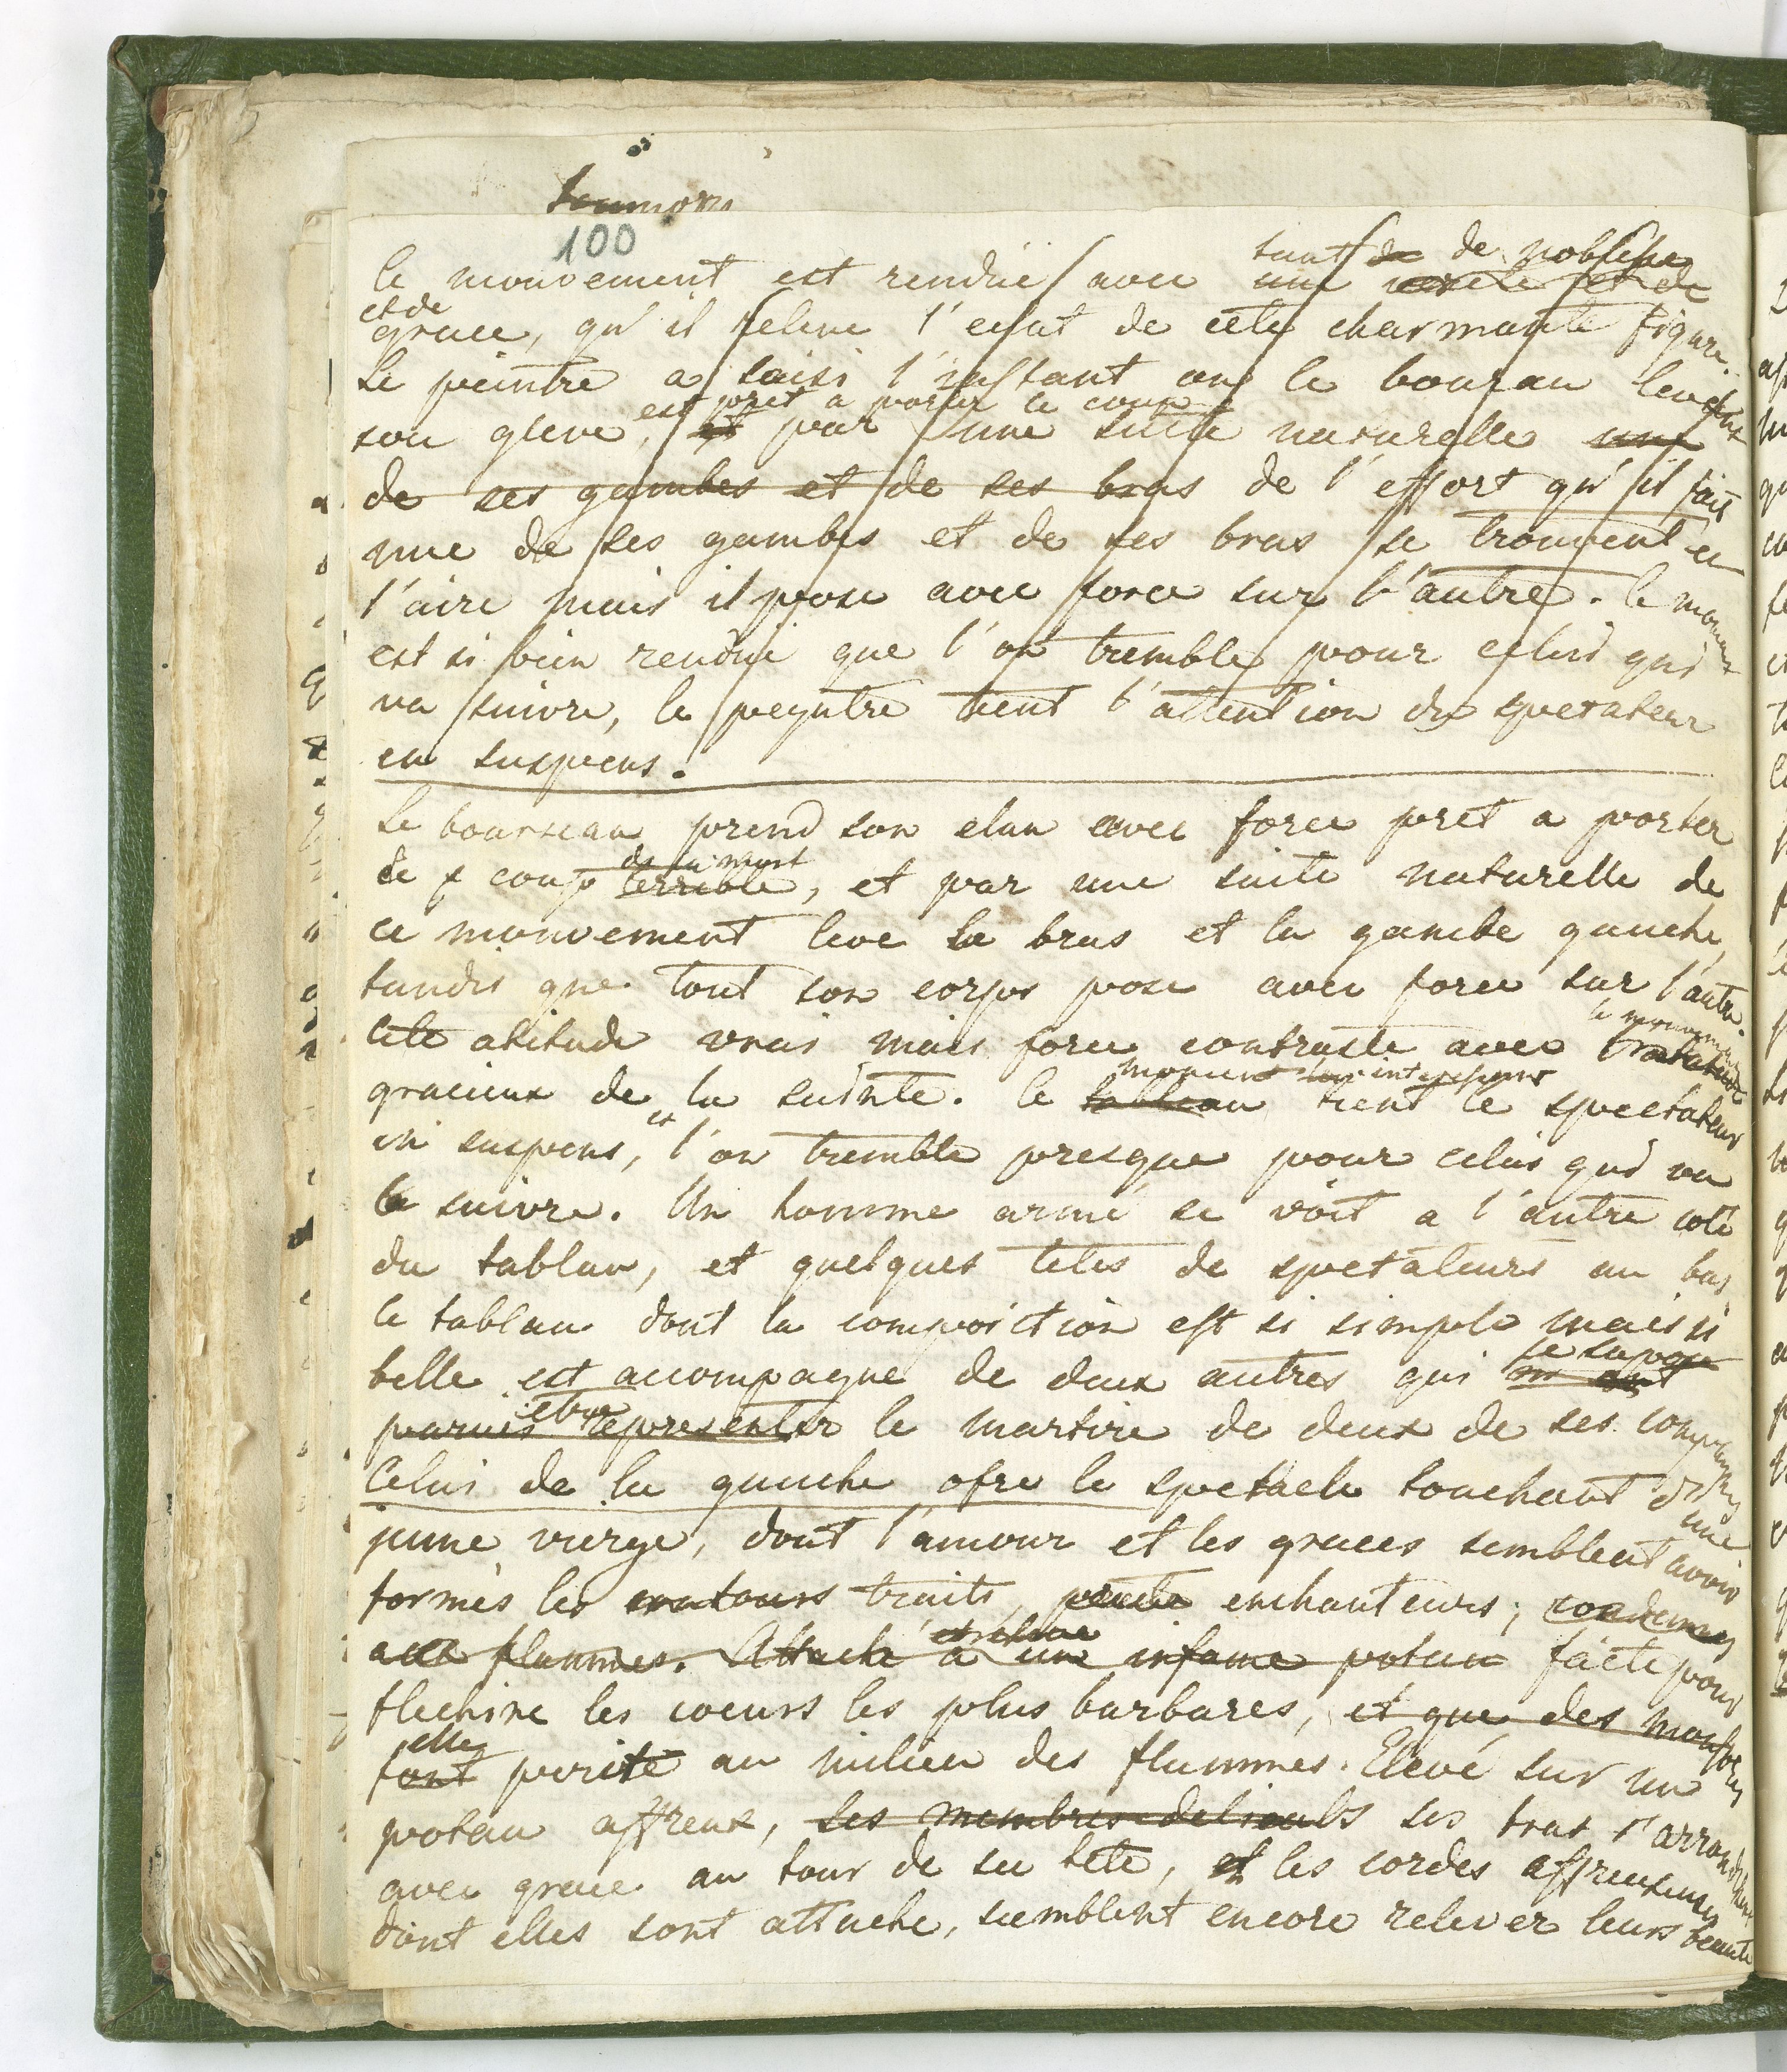 100
tant de de noblesse
le mouvement est rendüe avec une et de
et de
grace, qu'il releve l'eclat de cete charmante figure.
Le peintre a saisi l'instant ou le boureau leve
est pret a porter le coup
son gleve, et par une suite naturelle une
de ses gambes et de ses bras de l'effort qu'il fait
une de ses gambes et de ses bras se trouvent en
l'aire mais il pose avec force sur l'autre. le moment
est si bien rendüe que l'on tremble pour celui qui
va suivre, le peyntre tient l'attention du spectateur
en suspens.
Le bourreau prend son elan avec force pret a porter
de la mort
le coup terrible, et par une suite naturelle de
ce mouvement leve le bras et la gambe gauche,
tandis que tout son corps pose avec force sur l'autre.
le mouvement
Cete atitude vrai mais force contraste avec l'atitude
gracieux de la sainte. le tableau tient le spectateur
moment interessant
et
en suspens, l'on tremble presque pour celui qui va
le suivre. Un homme armé se voit a l'autre coté
du tablau, et quelques tetes de spectateurs au bas
le tablau dont la composiction est si simple mais si
belle est accompagne de deux autres qui ont
je supose
etre
parues representer le martire de deux de ses compagnes
Celui de la gauche ofre le spectacle touchant d'une
jeune vierge, dont l'amour et les graces semblent avoir
formés les contours traits, enchanteurs; condamnes
aux flammes. Attaché a une infame potau faite pour
flechire les coeurs les plus barbares, et que des monstres
elle
font perite au milieu des flammes. Elevé sur un
potau affreux, ses membres delicats ses bras s'arrondissent
avec grace au tour de sa tete, et les cordes affreuses
dont elles sont attache, semblent encore relever leurs beauté